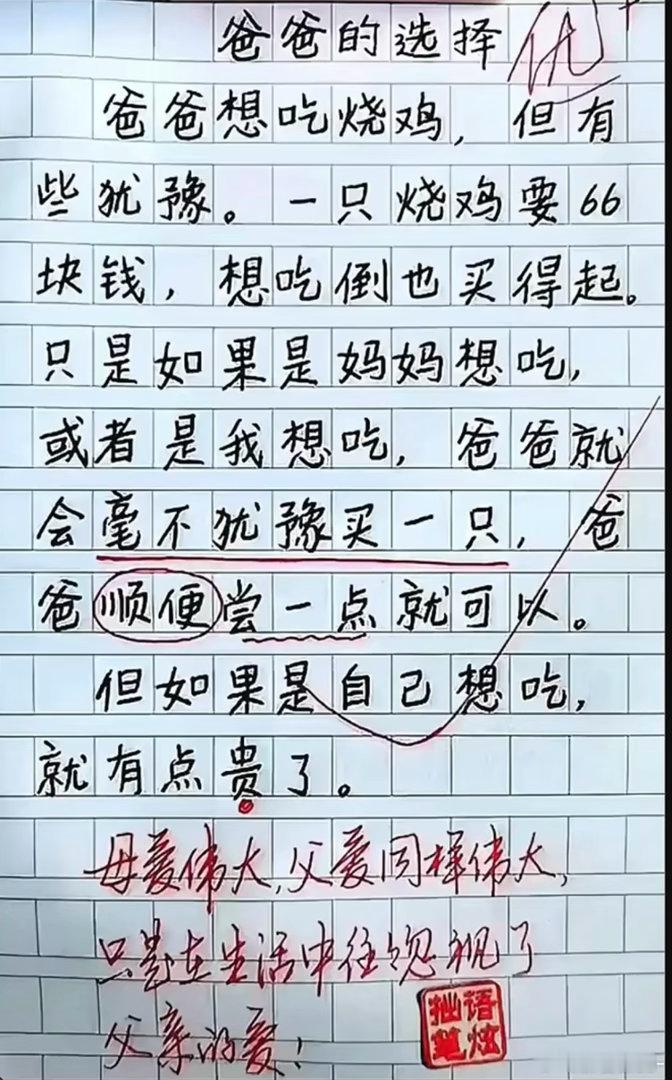 爸爸的选择 优+
爸爸想吃烧鸡，但有
些犹豫。一只烧鸡要66
块钱，想吃倒也买得起。
只是如果是妈妈想吃，
或者是我想吃，爸爸就
会毫不犹豫买一只，爸
爸顺便尝一点就可以。
但如果是自己想吃，
就有点贵了。
母爱伟大，父爱同样伟大，
只是在生活中往忽视了
父亲的爱！
语炫
拙笔